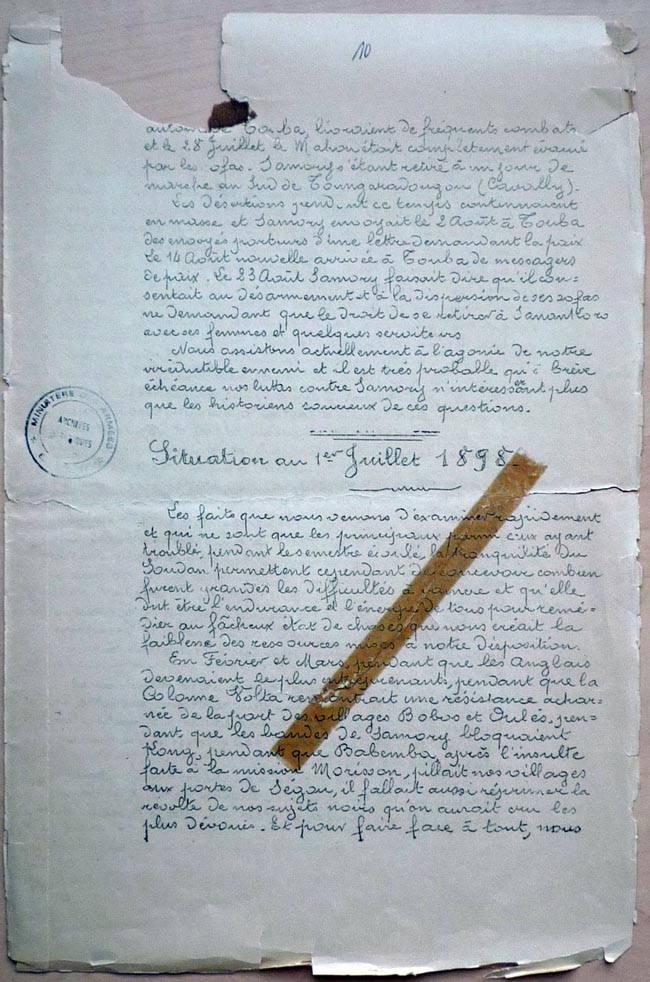 10
autour de Touba, livraient de fréquents combats
et le 28 Juillet le Mahou était complètement évacué
par les sofas. Samory s'étant retiré à un jour de
marche au Sud de Toungaradougou (Cavally).
Les désertions pendant ce temps continuaient
en masse et Samory envoyait le 2 Août à Touba
des envoyés porteurs d'une lettre demandant la paix
Le 14 Août nouvelle arrivée à Touba de messagers
de paix. Le 23 Août Samory faisait dire qu'il con-
sentait au désarmement et à la dispersion de ses sofas
ne demandant que le droit de se retirer à Sanankoro
avec ses femmes et quelques serviteurs
Nous assistons actuellement à l'agonie de notre
irréductible ennemi et il est très probable qu'à brève
échéance nos luttes contre Samory n'intéresseront plus
que les historiens soucieux de ces questions.
MINISTERE DES ARMEES
ARCHIVES
Situation au 1er Juillet 1898.
Les faits que nous venons d'examiner rapidement
et qui ne sont que les principaux parmi ceux ayant
troublé pendant le semestre écoulé la tranquilité du
Soudan permettent cependant de concevoir combien
furent grandes les difficultés à vaincre et qu'elle
dut être l'endurance et l'énergie de tous pour remé-
dier au fâcheux état de choses que nous créait la
faiblesse des ressources mises à notre disposition.
En Février et Mars, pendant que les Anglais
devenaient le plus entreprenants, pendant que la
Colonne Volta rencontrait une résistance achar-
née de la part des villages Bobos et Oulés, pen-
dant que les bandes de Samory bloquaient
Kong, pendant que Babemba, après l'insulte
faite à la mission Morisson, pillait nos villages
aux portes de Ségou, il fallait aussi réprimer la
révolte de nos sujets noirs qu'on aurait cru les
plus dévoués. Et pour faire face à tout, nous